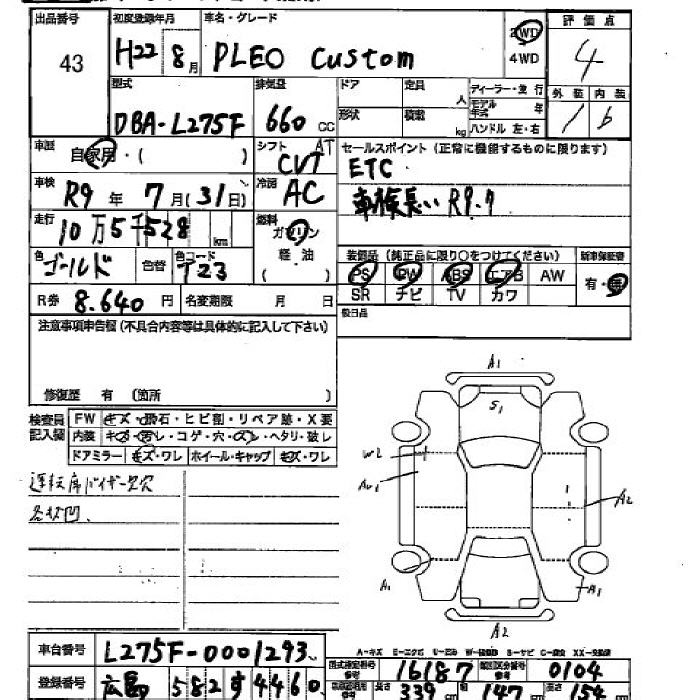 出品番号 初度登録年月 車名・グレード 評価点
43 H22 8月 PLEO Custom 2WD 4WD 4
型式 排気量 ドア 定員 人 ディーラー・並行 外装 内装
DBA-L275F 660 CC 形状 積載 kg モデル年式 年 ハンドル 左・右 1 b
車歴 自家用・( ) シフト AT CVT セールスポイント(正常に機能するものに限ります)
ETC
車検 R9年 7月(31日) 冷房 AC 車検長い R9.7
走行 10万5千528km 燃料 ガソリン 軽油 ( )
装備品(純正品に限り○をつけてください) 新車保証書
色 ゴールド 色替 色コード T23 PS PW ABS エアB AW 有・無
R券 8.640円 名変期限 月 日 SR ナビ TV カワ
注意事項申告欄(不具合内容等は具体的に記入して下さい)
修復歴 有 〔箇所 〕
検査員記入欄 FW キズ・飛石・ヒビ割・リペア跡・X要
内装 キズ・汚レ・コゲ・穴・スレ・ヘタリ・破レ
ドアミラー キズ・ワレ ホイール・キャップ キズ・ワレ
運転席バイザー欠穴
各状凹.
A1
S1
W2
AU1
A2
A1
A1
A2
A-キズ E-エクボ U-凹み W-補修跡 S-サビ C-腐食 XX-交換済
車台番号 L275F-0001293
型式指定番号 16187 類別区分番号 0104
登録番号 広島 582 す 4460
長さ 339 cm 147 cm 高さ 154 cm